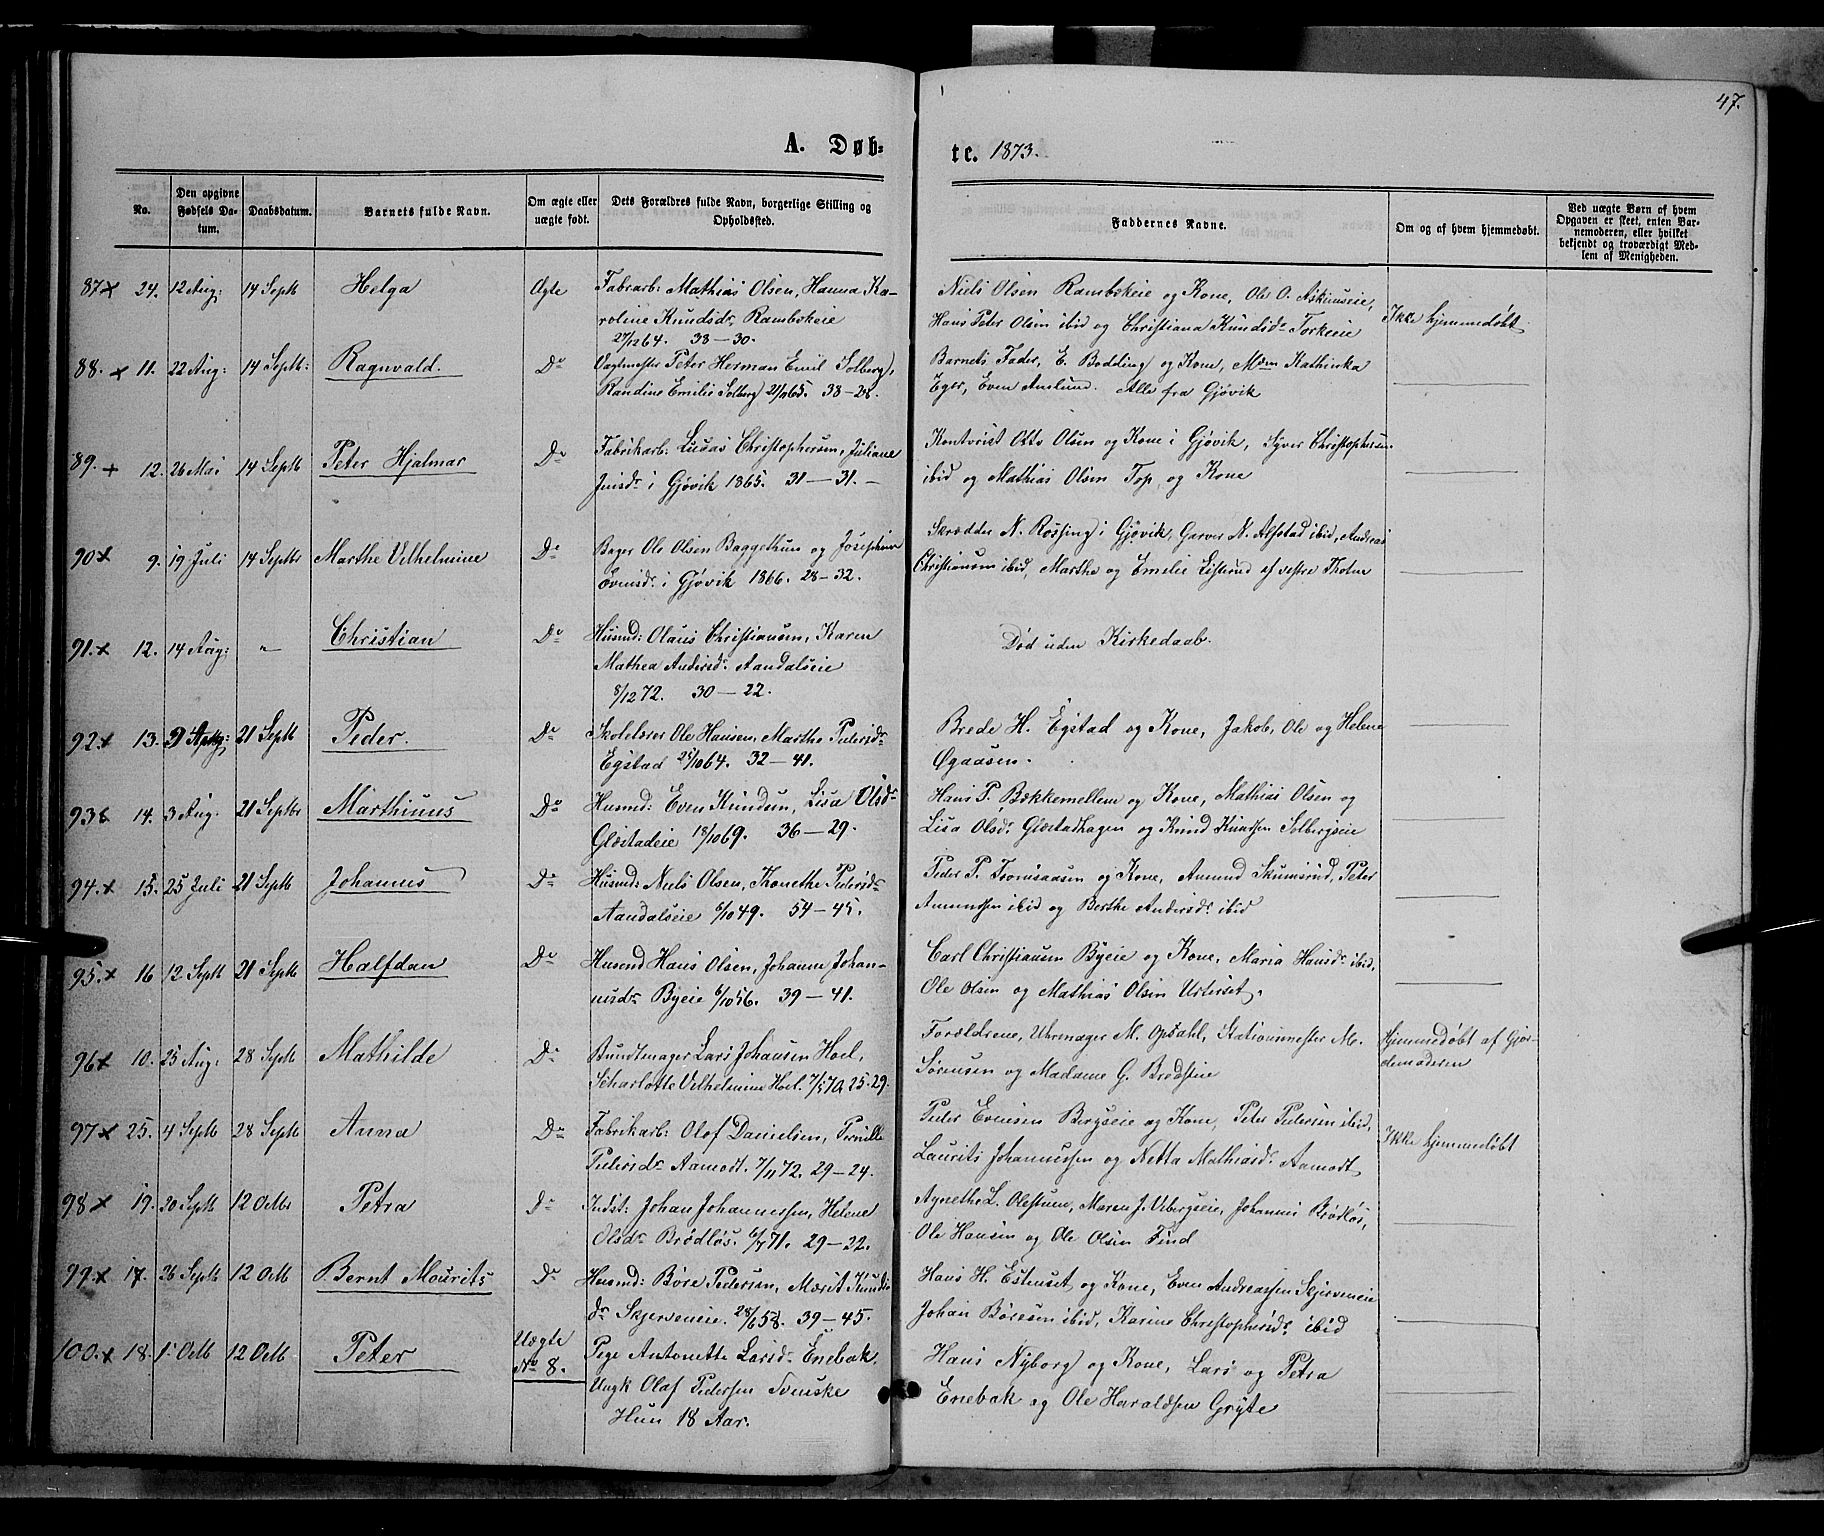 47.
A. Døb=
te. 1873.
No.
Den opgivne Fødsels Da-
tum.
Daabsdatum.
Barnets fulde Navn.
Om ægte eller uægte født.
Dets Forældres fulde Navn, borgerlige Stilling og Opholdssted.
Faddernes Navne.
Om og af hvem hjemmedøbt.
Ved uægte Børn af hvem
Opgaven er skeet, enten Bar-
nemoderen, eller hvilket
bekjendt og troværdigt Med-
lem af Menigheden.
87 x 24. 12 Aug: 14 Septb Helga Ægte Fabrarb: Mathias Olsen, Hanna Ka-
roline Knudsdr, Rambekeie
27/12 64. 33–30.
Niels Olsen Rambekeie og Kone, Ole O. Askimeie,
Hans Peter Olsen ibid og Christiana Knudsdr
Ikke hjemmedøbt
88. x 11. 22 Aug: 14 Septb: Ragnvald. Do Vagtmester Peter Herman Emil Solberg,
Randine Emilie Solberg 33–28.
Barnets Fader, E. Bodding og Kone, Mdm Kathinka
Eger, Even Amlund. Alle fra Gjøvik
89. + 12. 26 Mai 14 Septb Peter Hjalmar Do Fabrikarb: Lucas Christophersen, Juliane
Jensdr i Gjøvik 1865. 31–31.
Kontorist Otto Olsen og Kone i Gjøvik, Syver Christophersen
ibid og Mathias Olsen Top, og Kone
90 x 9. 19 Juli 14 Septbr Marthe Vilhelmine Do Bager Ole Olsen Baggethun og Josephine
Evensdr i Gjøvik 1866. 28–32.
Skrædder N. Røssjng i Gjøvik, Garver N. Alfstad ibid, Andreas
Christiansen ibid, Marthe og Emilie Listerud af vestre Thoten
91. x 12. 14 Aug: " Christian Do Husmd: Olaus Christiansen, Karen
Mathea Andersdr Aandalseie
8/12 72. 30–22.
Død uden Kirkedaab.
92 x 13. 21 Septb Peder. Do Skolelærer Ole Hansen, Marthe Pedersdr
Egstad 25/10 64. 32–41.
Brede H. Egstad og Kone, Jakob, Ole og Helene
Øgaasen.
93 x 14. 3 Aug. 21 Septbr Marthinus Do Husmd: Even Knudsen, Lisa Olsdr
Glæstadeie 18/10 69. 36–29.
Hans P. Bækkemellem og Kone, Mathias Olsen og
Lisa Olsdr Glæstadhagen og Knud Knudsen Solbergseie
94. x 15. 25 Juli 21 Septb Johannes Do Husmd: Niels Olsen, Thonethe Pedersdr
Aandalseie 6/10 49. 54–45.
Peder P. og Kone, Amund Skumsrud, Peter
Amundsen ibid og Berthe Andersdr ibid
95. x 16 12 Septb 21 Septb Halfdan Do Husmd Hans Olsen, Johanne Johan-
nesdr Byeie 6/10 56. 39–41.
Carl Christiansen Byeie og Kone, Maria Hansdr ibid,
Ole Olsen og Mathias Olsen Urterset.
96 x 10. 25 Aug. 28 Septb Mathilde Do Bundtmager Lars Johansen Hoel,
Scharlotte Vilhelmine Hoel. 7/5 70. 25–29.
Forældrene, Uhrmager M. Opsahl, Stationsmester M.
Sørensen og Madame G. Brodstue
Hjemmedøbt af Gjor-
demoderen
97 x 25. 4 Septb 28 Septb Anna Do Fabrikarb: Olof Danielsen, Pernille
Pedersdr Aamodt. 7/11 72. 29–24.
Peder Evensen Bergseie og Kone, Peter Pedersen ibid,
Laurits Johannessen og Netta Mathiasdr Aamodt
Ikke hjemmedøbt
98 x 19. 20 Septb 12 Octbr Petra Do Indst: Johan Johannessen, Helene
Olsdr Brødløs. 6/7 71. 29–22.
Agnethe L. Olestuen, Maren J. Vebergseie, Johannes Brødløs,
Ole Hansen og Ole Olsen Find
99. x 17. 26 Septb 12 Octb Bernt Mourits Do Husmd: Børe Pedersen, Marit Knuds-
dr Skjerveneie. 28/6 58. 39–45.
Hans H. Estuset og Kone, Even Andreassen Skjerveneie
Johan Børesen ibid, Karine Christophersdr ibid
100. x 18. 1 Octb 12 Octb Peter Uægte
No 8. Pige Antonette Larsdr Enebak.
Ungk Olaf Pedersen Svenske
Hun 18 Aar.
Hans Nyborg og Kone, Lars og Petra
Enebak og Ole Haraldsen Gryte